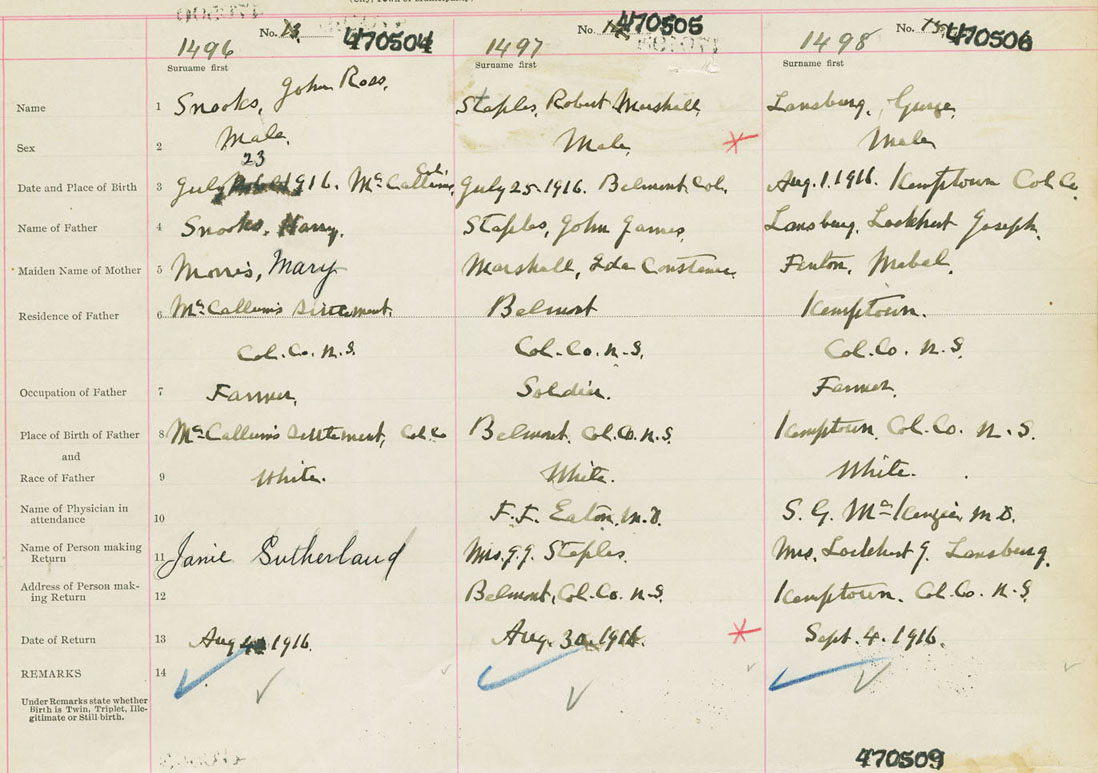 (City, Town or Municipality)
No. 13 470504 No. 470505 No. 470506
1496 1497 1498
Surname first Surname first Surname first
Name 1 Snooks, John Ross. Staples, Robert Marshall, Lansburg, George,
Sex 2 Male. Male, Male
23
Date and Place of Birth 3 July 1916. McCallums, Col. July 25-1916. Belmont, Col. Aug. 1. 1916. Kemptown Col. Co.
Name of Father 4 Snooks, Harry. Staples, John James, Lansburg, Lockhart Joseph,
Maiden Name of Mother 5 Morris, Mary Marshall, Ida Constance. Fenton, Mabel.
Residence of Father 6 McCallum's Settlement, Belmont Kemptown.
Col. Co. N.S. Col. Co. N.S. Col. Co. N.S.
Occupation of Father 7 Farmer, Soldier. Farmer,
Place of Birth of Father 8 McCallum's Settlement, Col. Co Belmont, Col. Co. N.S. Kemptown, Col. Co. N.S.
and
Race of Father 9 White. White. White.
Name of Physician in
attendance 10 F.F. Eaton, M.D. S. G. McKenzie, M.D.
Name of Person making
Return 11 Janie Sutherland Mrs. J.J. Staples. Mrs. Lockhart J. Lansburg.
Address of Person mak-
ing Return 12 Belmont, Col. Co. N.S. Kemptown. Col. Co. N.S.
Date of Return 13 Aug 1916. Aug. 30. 1916. Sept. 4. 1916.
REMARKS 14
Under Remarks state whether
Birth is Twin, Triplet, Ille-
gitimate or Still-birth.
470509